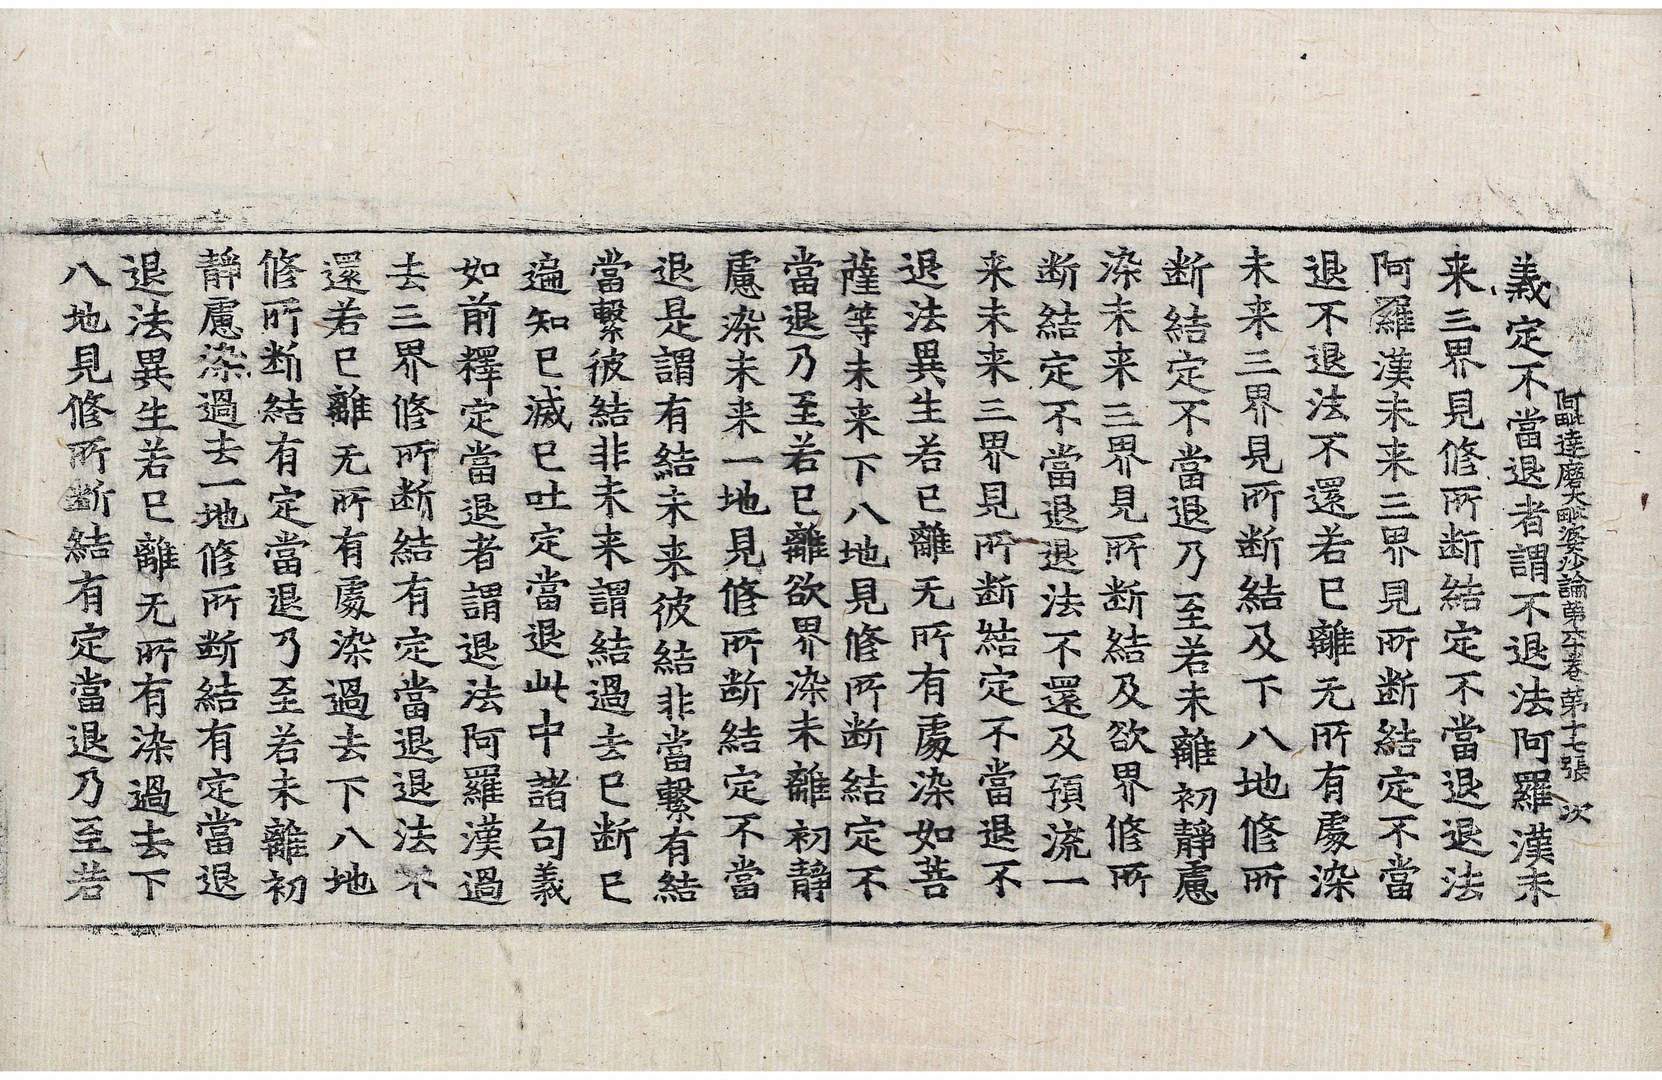 阿毗達磨大毗婆沙論第六十卷 第十七張 次
義定不當退者謂不退法阿羅漢未
来三界見修所断結定不當退退法
阿羅漢未来三界見所断結定不當
退不退法不還若已離无所有處染
未来三界見所断結及下八地修所
断結定不當退乃至若未離初靜慮
染未来三界見所断結及欲界修所
断結定不當退退法不還及預流一
来未来三界見所断結定不當退不
退法異生若已離无所有處染如菩
薩等未来下八地見修所断結定不
當退乃至若已離欲界染未離初靜
慮染未来一地見修所断結定不當
退是謂有結未来彼結非當繫有結
當繫彼結非未来謂結過去已断已
遍知已滅已吐定當退此中諸句義
如前釋定當退者謂退法阿羅漢過
去三界修所断結有定當退退法不
還若已離无所有處染過去下八地
修所断結有定當退乃至若未離初
靜慮染過去一地修所断結有定當退
退法異生若已離无所有染過去下
八地見修所断結有定當退乃至若